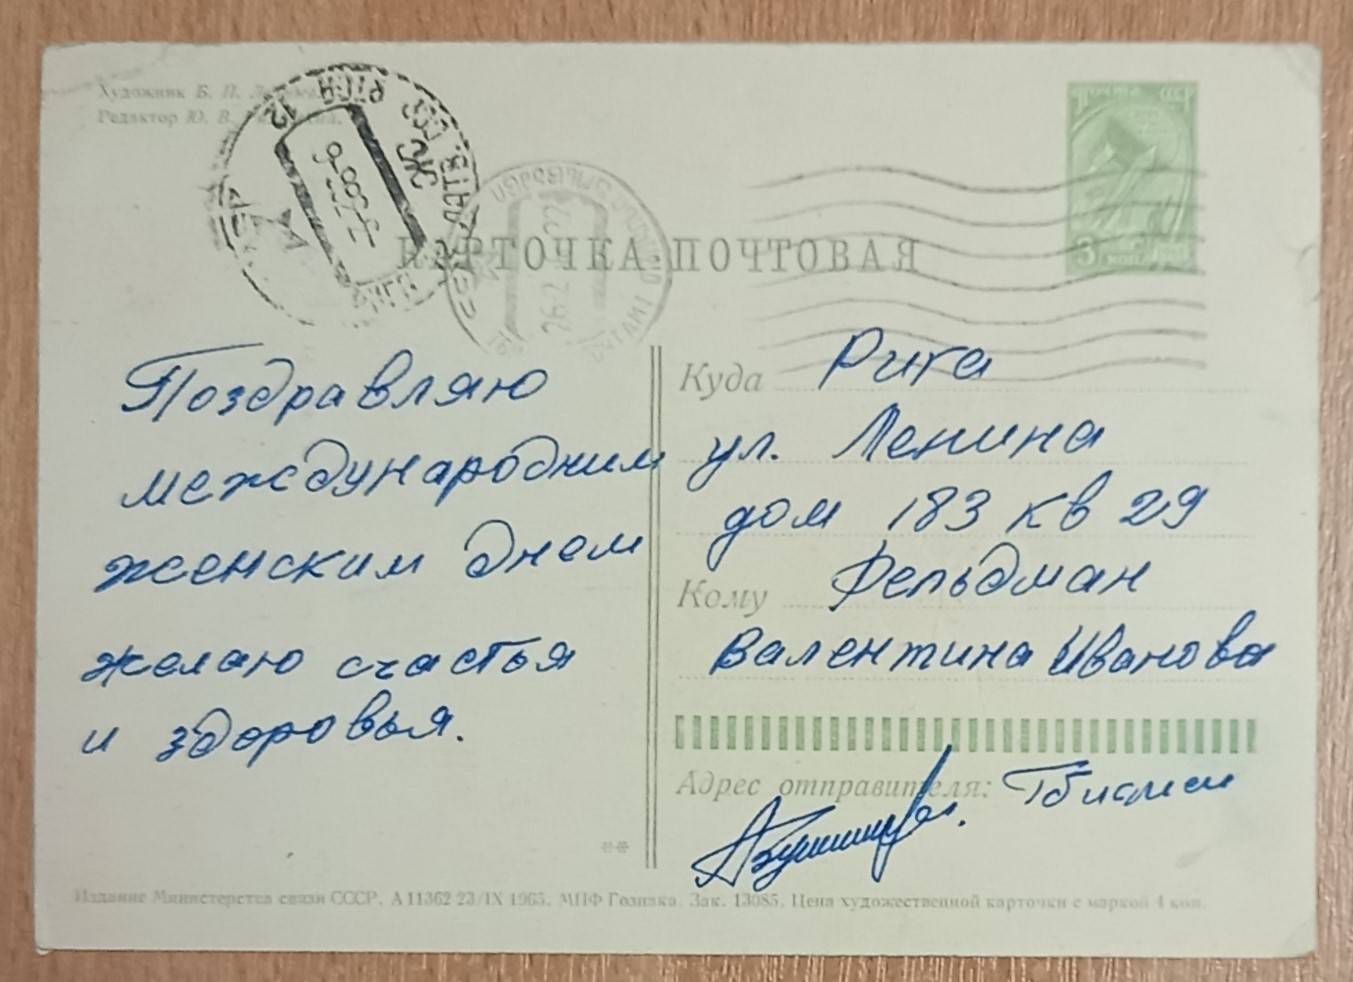 Художник Б. П.
Редактор Ю. В.
ПОЧТА СССР
3 КОП
РИГА
12
КАРТОЧКА ПОЧТОВАЯ
Поздравляю
международним
женским днем
желаю счастья
и здоровья.
Куда Рига
ул. Ленина
дом 183 кв 29
Кому Фельдман
Валентина Иванова
Адрес отправителя: Тбилиси
Издание Министерства связи СССР. А 11362 23/IX 1965. МПФ Гознака. Зак. 13085. Цена художественной карточки с маркой 4 коп.